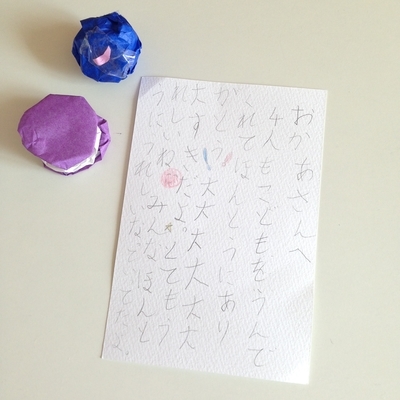 おかあさんへ
4人もこどもをうんで
くれてほんとうにあり
がとう大大大大大大
大すきだよ。とてもう
れしいね みんなほんと
うにうれしいな